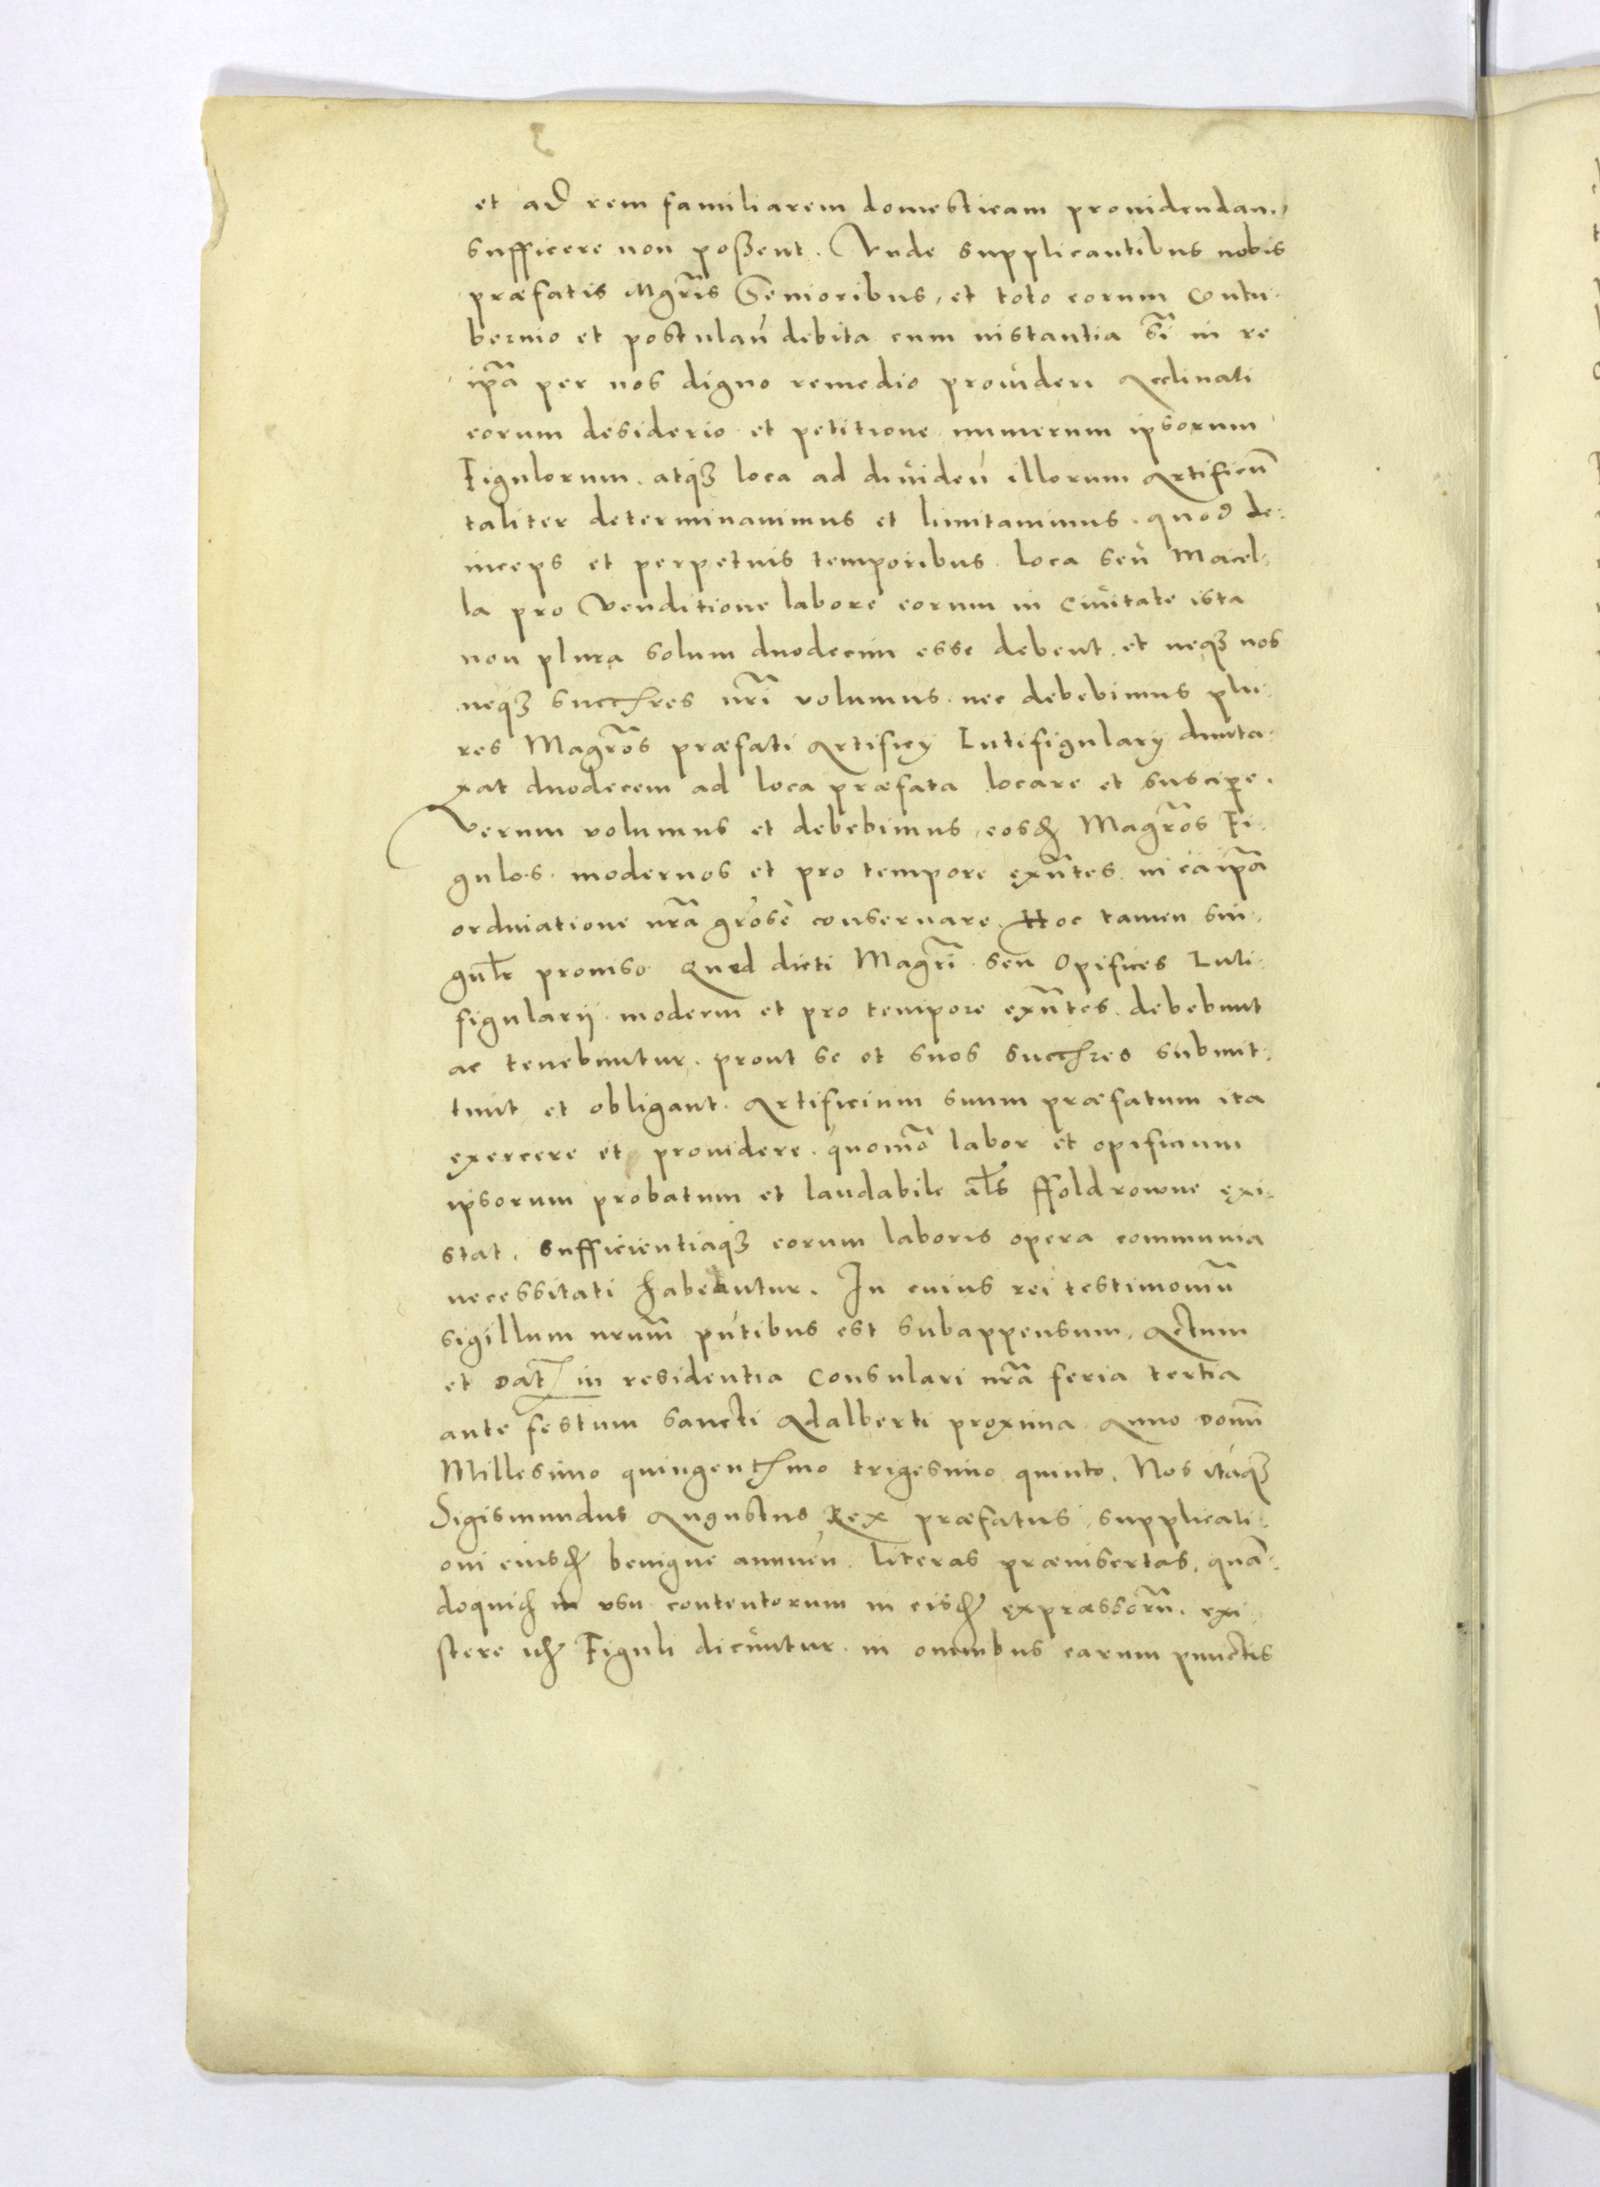 et ad rem familiarem domesticam prouidendam,
sufficere non poßent. Vnde supplicantibus nobis
præfatis Mgrĩs Senioribus, et toto eorum Contu-
bernio et postulañ debita cum instantia Si in re
ip̃a per nos digno remedio prouideri Acclinati
eorum desiderio et petitione numerum ipsorum
Figulorum. atqȝ loca ad diuideñ illorum Artificiũ
taliter determinauimus et limitauimus. quod de:
inceps et perpetuis temporibus loca seu Macel:
la pro Venditione labore eorum in Ciuitate ista
non plura solum duodecim esse debent. et neqȝ nos
neqȝ succħres nrĩ volumus. nec debebimus plu:
res Magrõs præfati Artificij Lutifigularij dunta:
xat duodecem ad loca præfata locare et suscipe.
Verum volumus et debebimus, eosdȝ Magrõs Fi:
gulos. modernos et pro tempore exñtes in ea ip̃a
ordinatione nrã grõse conseruare. Hoc tamen sin:
gulr prouiso Quod dicti Magrĩ seu Opifices Luti:
figularij. moderni et pro tempore exñtes. debebunt
ac tenebuntur. prout se et suos succħres submit:
tunt et obligant. Artificium suum præfatum ita
exercere et prouidere. quomõ labor et opificium
ipsorum probatum et laudabile als ffoldrowne exi:
stat. Sufficientiaqȝ eorum laboris opera communia
necessitati habeantur. In cuius rei testimoniũ
sigillum nrum̃ pñtibus est subappensum. Actum
et Dat in residentia Consulari nrã feria tertia
ante festum Sancti Adalberti proxima Anno Domĩ
Millesimo quingentħmo trigesimo quinto. Nos itaqȝ
Sigismundus Augustus Rex præfatus, supplicati:
oni eiusdȝ benigne annueñ. literas præinsertas, quã:
doquidȝ in vsu contentorum in eisdȝ expræssorũ. exi
stere idȝ Figuli dicuntur. in omnibus earum punctis